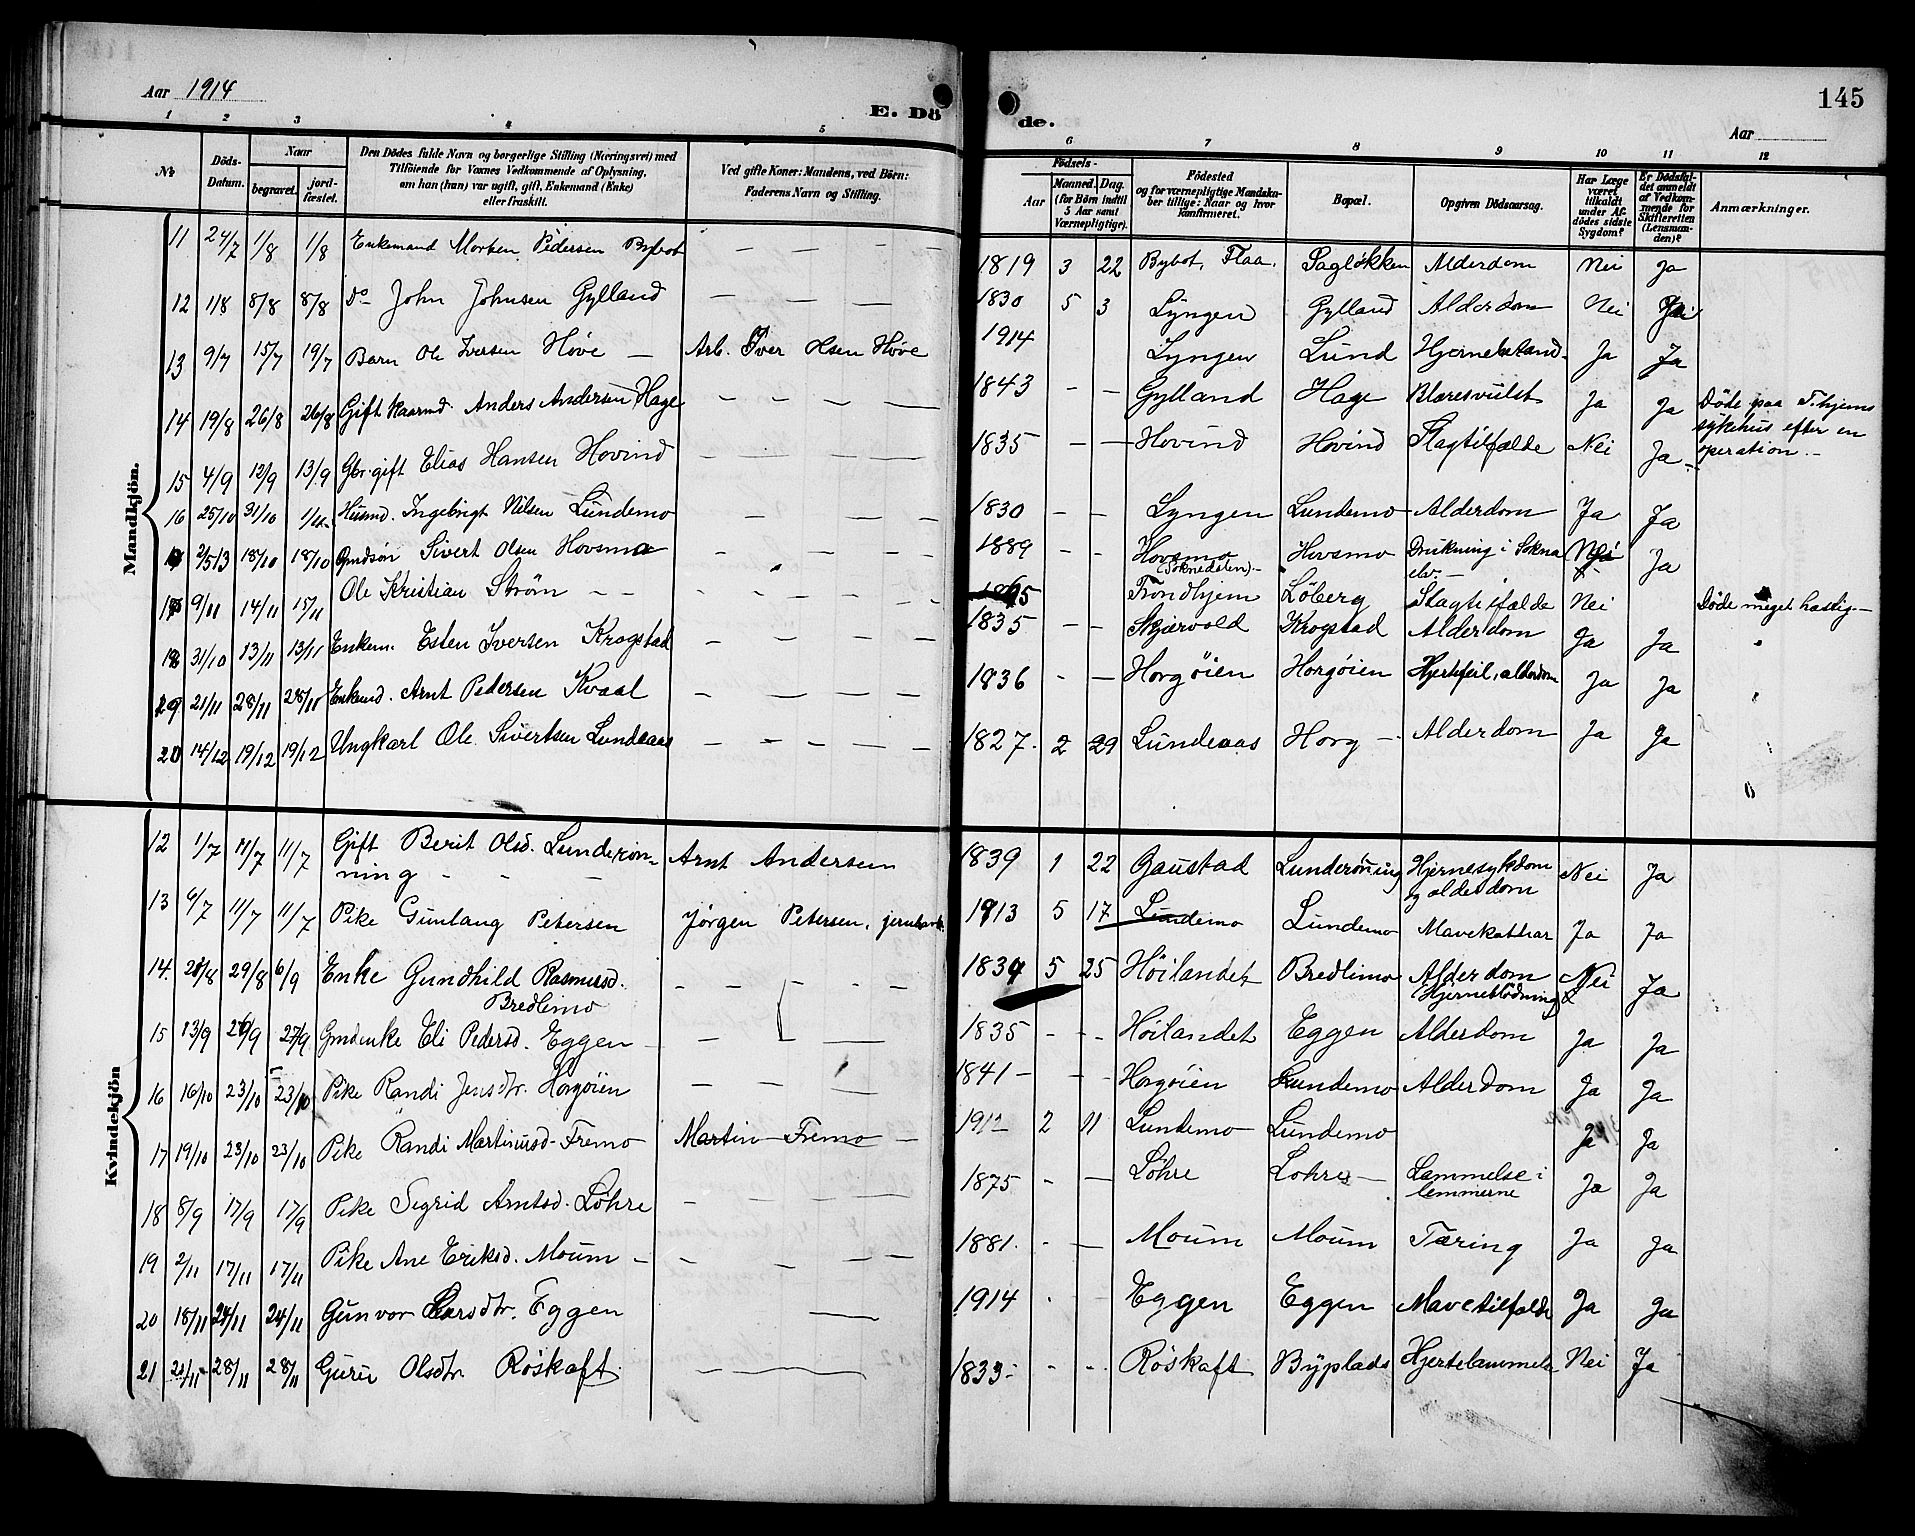 Aar 1914
E. Dö
de.
145
Aar
1 2 3 4 5
6 7 8 9 10 11 12
№
Döds-Datum.
Naar
begravet.
jord-fæstet.
Den Dödes fulde Navn og borgerlige Stilling (Næringsvei) med
Tilföiende for Voxnes Vedkommende af Oplysning,
om han (hun) var ugift, gift, Enkemand (Enke)
eller fraskilt.
Ved gifte Koner: Mandens, ved Börn:
Faderens Navn og Stilling.
Födsels-
Aar
Maaned. Dag.
(for Börn indtil
5 Aar samt
Værnepligtige).
Födested
og for værnepligtige Mandska-
ber tillige: Naar og hvor
konfirmeret.
Bopæl.
Opgiven Dödsaarsag.
Har Læge
været
tilkaldt
under Af-
dödes sidste
Sygdom?
Er Dödsfal-
det anmeldt
af Vedkom-
mende for
Skifteretten
(Lensman-
den)?
Anmærkninger.
Mandkjön.
11 24/7 1/8 1/8 Enkemand Morten Pedersen Bybot — — — — 1819 3 22 Bybot, Flaa. Sagløkken Alderdom Nei Ja
12 1/8 8/8 8/8 Do John Johnsen Gylland — — — — 1830 5 3 Lyngen Gylland Alderdom Nei Ja
13 9/7 15/7 19/7 Barn Ole Iversen Høve — Arb. Iver Olsen Høve 1914 Lyngen Lund Hjernebetænd. Ja Ja
14 19/8 26/8 26/8 Gift Kaarmd. Anders Andersen Hage — — — — 1843 — — Gylland Hage Blæresvulst Ja Ja Døde paa T.hjems
sykehus efter en
operation. —
15 4/9 12/9 13/9 Gbr. gift Elias Hansen Hovind — — — — 1835 — — Hovind Hovind Slagtilfælde Nei Ja
16 25/10 31/10 1/11 Husmd. Ingebrigt Nilsen Lundemo — — — — 1830 — — Lyngen Lundemo Alderdom Ja Ja
2/5 13 18/10 18/10 Gmdsøn Sivert Olsen Hovsmo — — — — 1889 — — Hovsmo
(Soknedalen). Hovsmo Drukning i Sokna
elv. — Nei Ja
9/11 14/11 15/11 Ole Kristian Strøm — — Trondhjem Løberg Slagtilfælde Nei Døde meget hastig. —
18 31/10 13/11 13/11 Enkem. Esten Iversen Krogstad — — — — 1835 — — Skjærvold Krogstad Alderdom Ja Ja
19 21/11 28/11 28/11 Enkemd. Arnt Pedersen Kvaal — — — — 1836 — — Horgøien Horgøien Hjertefeil, alderdom Ja Ja
20 14/12 19/12 19/12 Ungkarl Ole Sivertsen Lundeaas — — — — 1827. 2 29 Lundeaas Horg — Alderdom Ja Ja
Kvindekjön
12 1/7 11/7 11/7 Gift Berit Olsd. Lunderøn-
ning — — — Arnt Andersen 1839 1 22 Gaustad Lunderøning Hjernesykdom
og alderdom Nei Ja
13 6/7 11/7 11/7 Pike Gunlaug Petersen Jørgen Petersen, jernbanearb. 1913 5 17 Lundemo Lundemo Mavekathar Ja Ja
14. 28/8 29/8 6/9 Enke Gundhild Rasmusd.
Bredlimo — — — — 1834 5 25 Høilandet Bredlimo Alderdom
Hjerneblødning Nei Ja
15 13/9 26/9 27/9 Gmdenke Eli Pedersd. Eggen — — — — 1835 — — Høilandet Eggen Alderdom Ja Ja
16 16/10 23/10 23/10 Pike Randi Jensdtr. Horgøien — — — 1841 — — Horgøien Lundemo Alderdom Ja Ja
17 19/10 23/10 23/10 Pike Randi Martinusd. Fremo Martin Fremo — 1912 2 11 Lundemo Lundemo Ja Ja
18 8/9 17/9 17/9 Pike Sigrid Arntsd. Løhre — — — — 1875 — — Løhre Lohre — Lammelse i
lemmerne Ja Ja
19 2/11 17/11 17/11 Pike Ane Eriksd. Moum — — — — 1881. — — Moum Moum Tæring Ja Ja
20 18/11 24/11 24/11 Gunvor Larsdtr. Eggen — 1914 — — Eggen Eggen Mavetilfælde Ja Ja
21 21/11 28/11 28/11 Guru Olsdtr Røskaft — — — 1833 — — — Røskaft Byplads Hjertelammelse Nei Ja